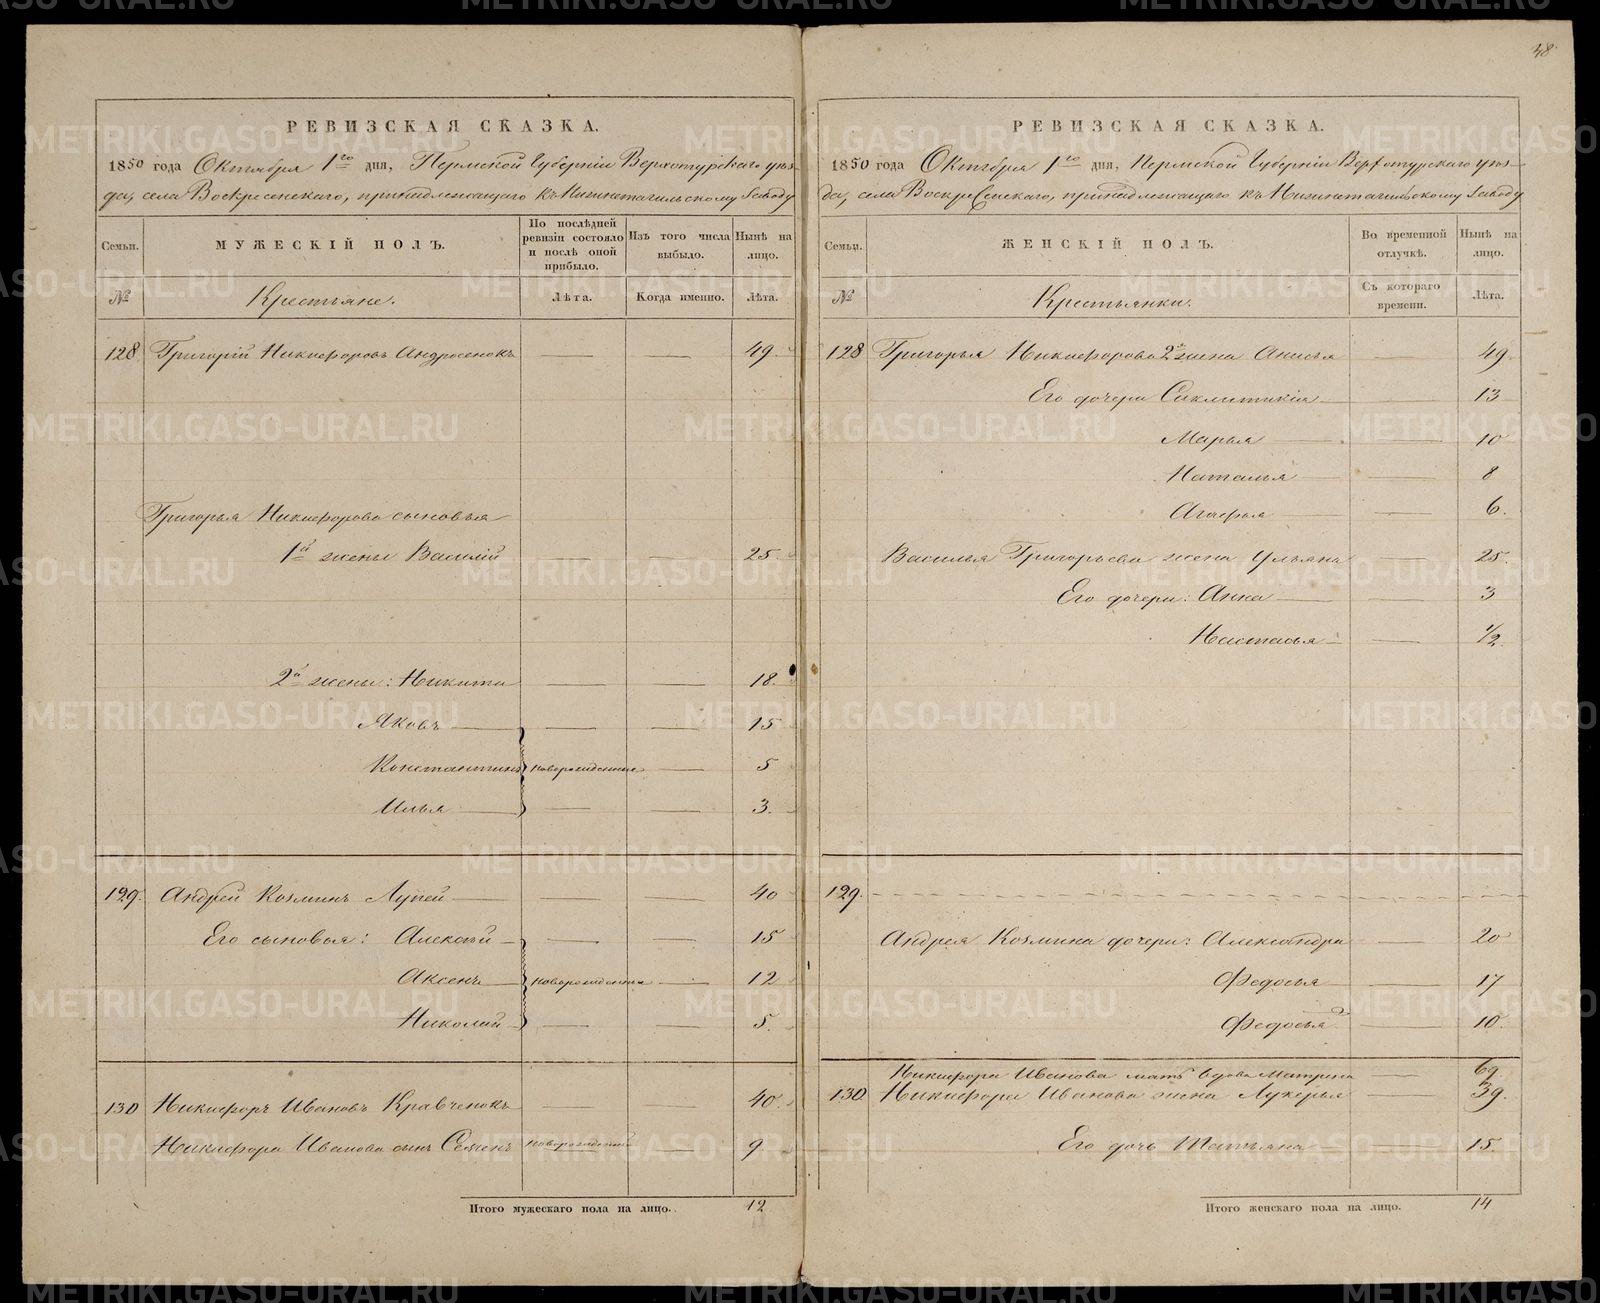 48
РЕВИЗСКАЯ СКАЗКА.
1850 года Октября 1го дня, Пермской Губерніи Верхотурскаго уѣз-
да, села Воскресенскаго, принадлежащаго къ Нижнетагильскому Заводу
Семьи. МУЖЕСКІЙ ПОЛЪ. По послѣдней ревизіи состояло и послѣ оной прибыло. Изъ того числа выбыло. Нынѣ на лицо.
№ Крестьяне. Лѣта. Когда именно. Лѣта.
128 Григорій Никифоровъ Андросенокъ — — 49.
Григорья Никифорова сыновья
1й жены Василій — — 25.
2й жены: Никита — — 18.
Яковъ — — 15
Константинъ новорожденные — 5
Илья — — 3.
129. Андрей Козминъ Лупей — — 40
Его сыновья: Алексѣй — — 15
Аксенъ новорожденные — 12
Николай — — 5.
130 Никифоръ Ивановъ Кравченокъ — — 40.
Никифора Иванова сынъ Семенъ новорожденный — 9
Итого мужескаго пола на лицо. 12
РЕВИЗСКАЯ СКАЗКА.
1850 года Октября 1го дня, Пермской Губерніи Верхотурскаго уѣз-
да, села Воскресенскаго, принадлежащаго къ Нижнетагильскому Заводу
Семьи. ЖЕНСКІЙ ПОЛЪ. Во временной отлучкѣ. Нынѣ на лицо.
№ Крестьянки. Съ котораго времени. Лѣта.
128 Григорья Никифорова 2я жена Анисья — 49.
Его дочери Сиклитикія — 13
Марья — 10
Наталья — 8
Агафья — 6.
Василья Григорьева жена Ульяна — 25.
Его дочери: Анна — 3
Настасья — 1/2.
129.
Андрея Козмина дочери: Александра — 20
Федосья — 17
Федосья 2 — 10.
Никифора Иванова мать вдова Матрена — 69.
130. Никифора Иванова жена Лукерья — 39.
Его дочь Татьяна — 15.
Итого женскаго пола на лицо. 14
METRIKI.GASO-URAL.RU